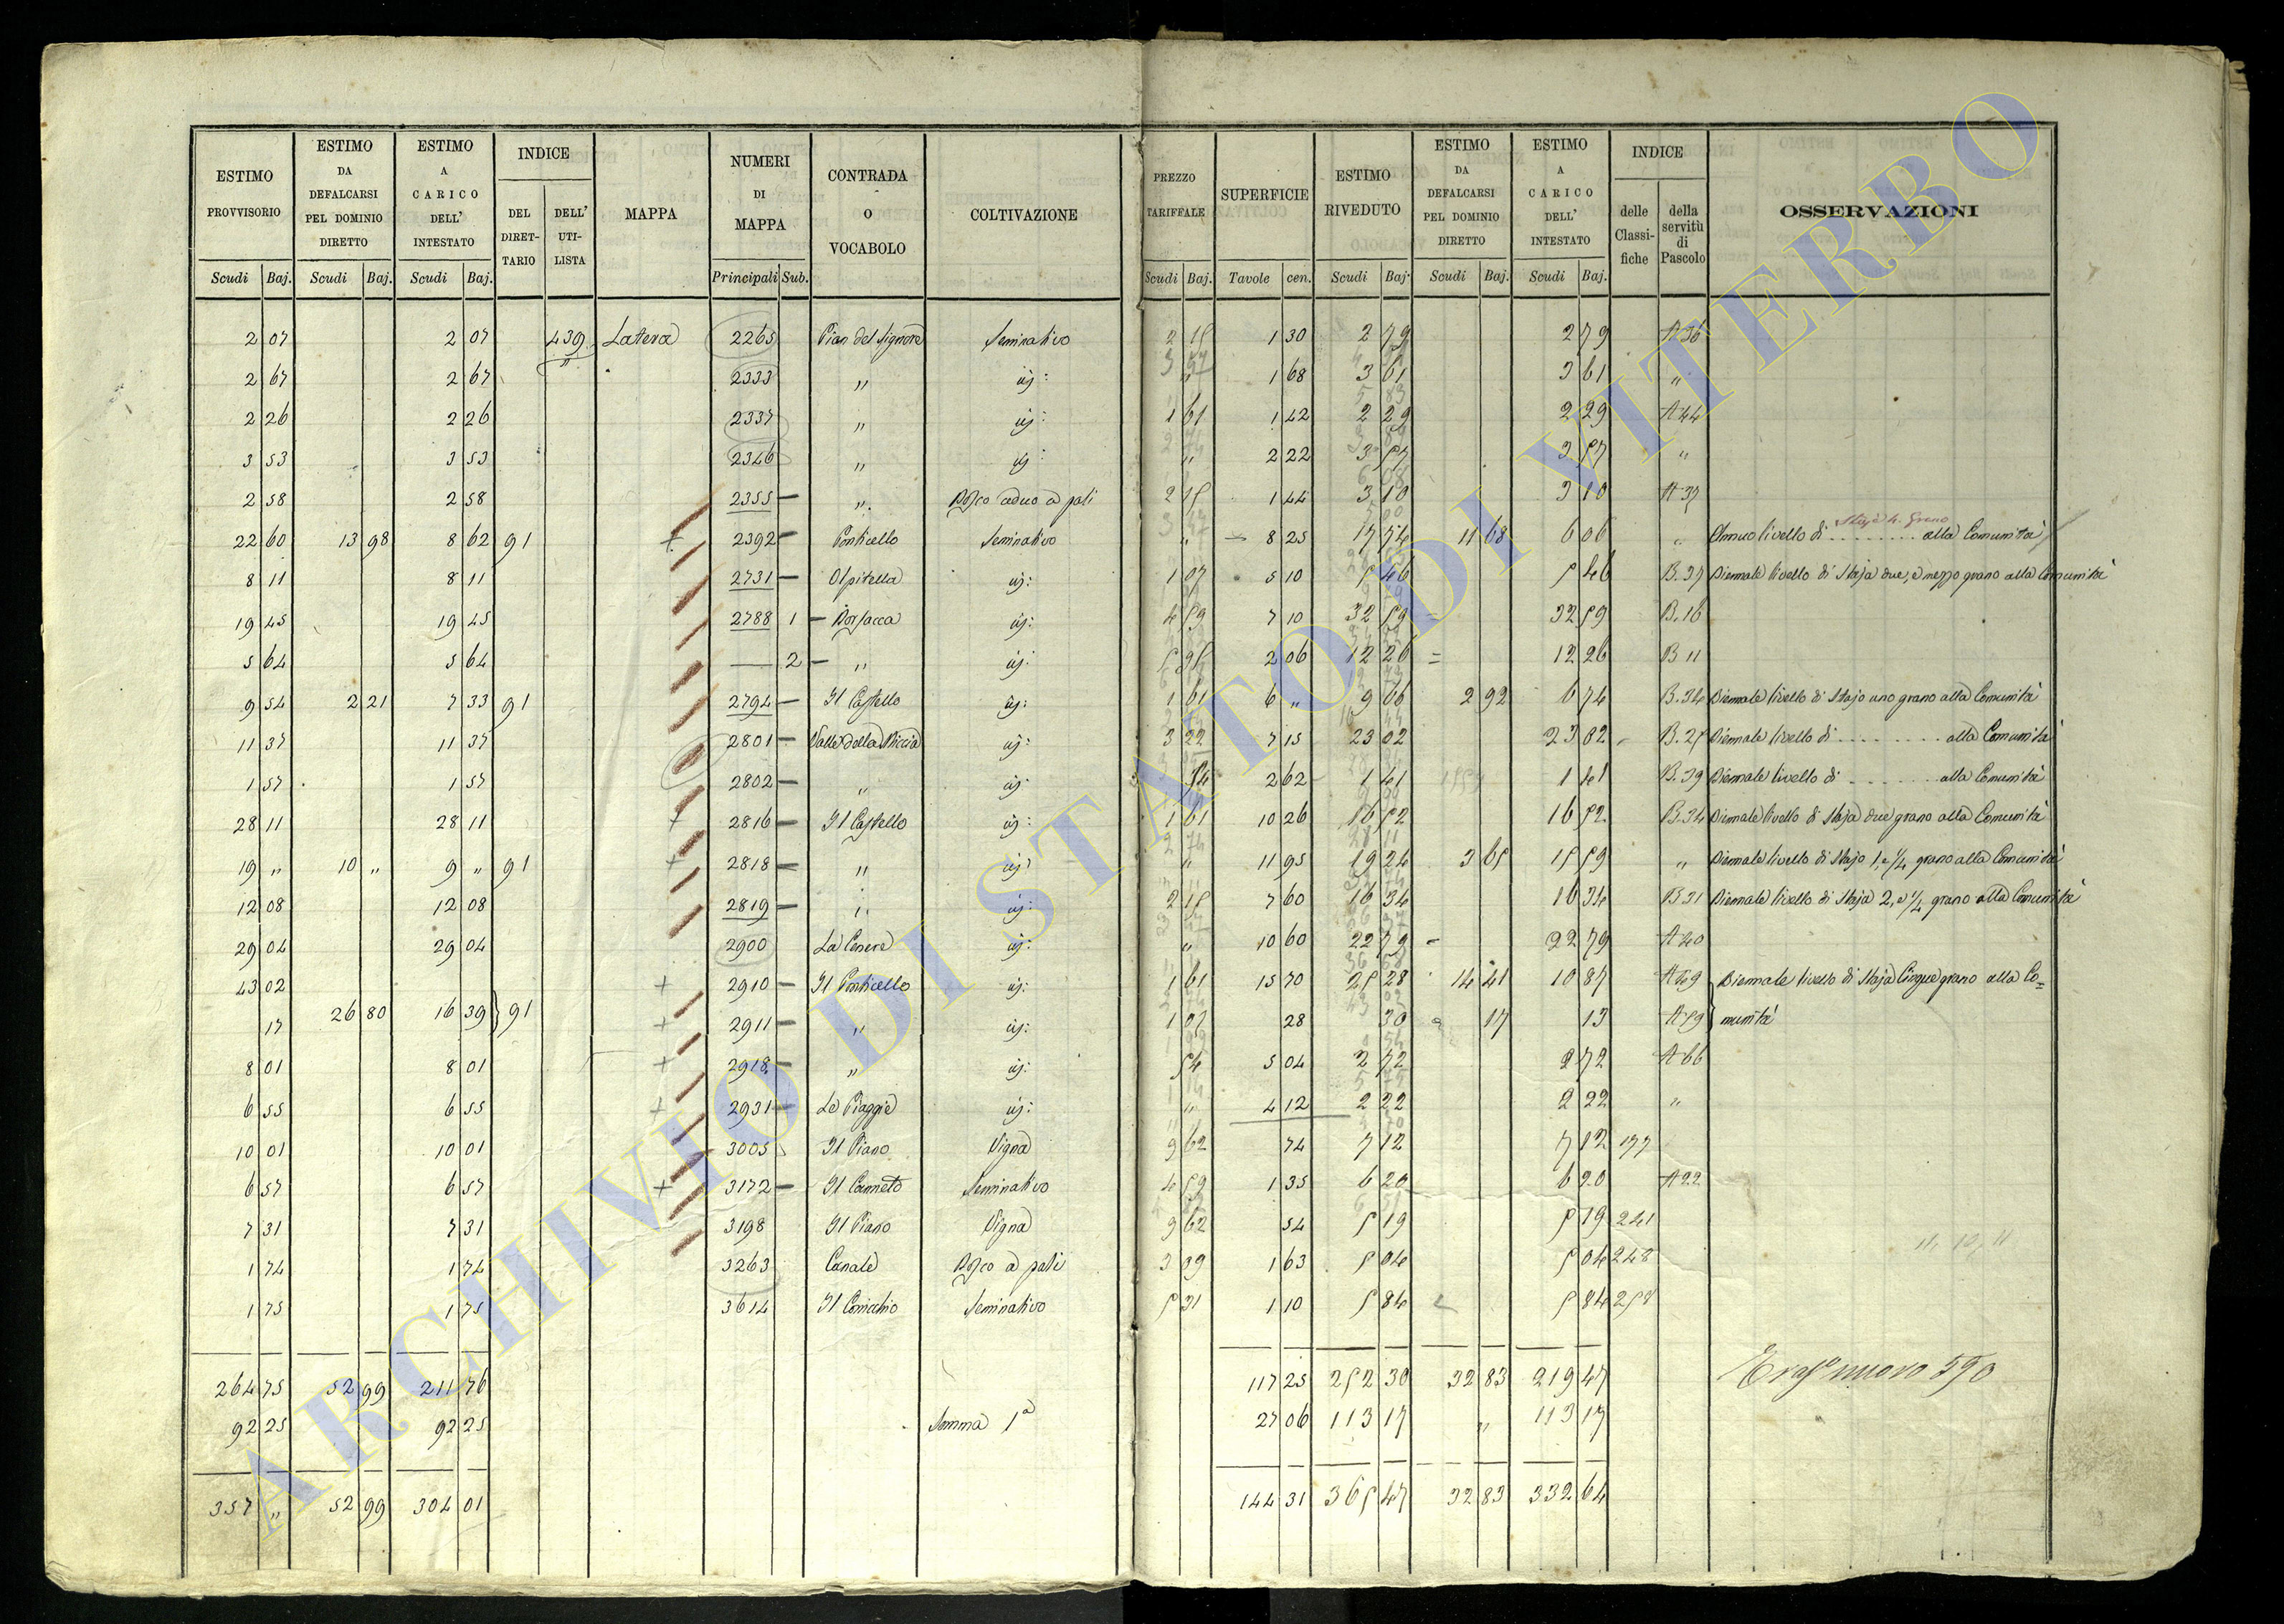 ESTIMO PROVVISORIO | ESTIMO DA DEFALCARSI PEL DOMINIO DIRETTO | ESTIMO A CARICO DELL' INTESTATO | INDICE | MAPPA | NUMERI DI MAPPA | CONTRADA O VOCABOLO | COLTIVAZIONE | PREZZO TARIFFALE | SUPERFICIE | ESTIMO RIVEDUTO | ESTIMO DA DEFALCARSI PEL DOMINIO DIRETTO | ESTIMO A CARICO DELL' INTESTATO | INDICE | OSSERVAZIONI
DEL DIRETTARIO | DELL' UTILISTA | delle Classifiche | della servitù di Pascolo
Scudi | Baj. | Scudi | Baj. | Scudi | Baj. | Principali | Sub. | Scudi | Baj. | Tavole | cen. | Scudi | Baj. | Scudi | Baj. | Scudi | Baj.
2 07 | 2 07 | 439 | Latera | 2265 | Pian del Signore | Seminativo | 2 15 | 1 30 | 2 79 | 2 79 | A 36
2 67 | 2 67 | " | 2333 | " | id: | " | 1 68 | 3 61 | 3 61 | "
2 26 | 2 26 | 2337 | " | id: | 1 61 | 1 42 | 2 29 | 2 29 | A 44
3 53 | 3 53 | 2346 | " | id: | " | 2 22 | 3 57 | 3 57 | "
2 58 | 2 58 | 2355 | " | Bosco ceduo a pali | 2 15 | 1 44 | 3 10 | 3 10 | A 37
22 60 | 13 98 | 8 62 | 91 | 2392 | Ponticello | Seminativo | " | 8 25 | 17 74 | 11 68 | 6 06 | " | Annuo livello di Staja 4. Grano alla Comunità
8 11 | 8 11 | 2731 | Ospitella | id: | 1 07 | 5 10 | 5 46 | 5 46 | B. 37 | Biennale livello di Staja due, e mezzo grano alla Comunità
19 45 | 19 45 | 2788 | 1 | Borsacca | id: | 4 59 | 7 10 | 32 59 | 32 59 | B. 16
5 64 | 5 64 | 2 | " | id: | 5 95 | 2 06 | 12 26 | 12 26 | B 11
9 54 | 2 21 | 7 33 | 91 | 2794 | Il Castello | id: | 1 61 | 6 " | 9 66 | 2 92 | 6 74 | B. 34 | Biennale livello di Stajo uno grano alla Comunità
11 37 | 11 37 | 2801 | Valle della Miccia | id: | 3 22 | 7 15 | 23 02 | 23 82 | B. 25 | Biennale livello di . . . . . . . . alla Comunità
1 57 | 1 57 | 2802 | " | id: | 54 | 2 62 | 1 41 | 1 41 | B. 39 | Biennale livello di . . . . . . . . alla Comunità
28 11 | 28 11 | 2816 | Il Castello | id: | 1 61 | 10 26 | 16 52 | 16 52 | B. 34 | Biennale livello di Staja due grano alla Comunità
19 " | 10 " | 9 " | 91 | 2818 | " | id: | " | 11 95 | 19 24 | 3 65 | 15 59 | " | Biennale livello di Stajo 1. e 1/4 grano alla Comunità
12 08 | 12 08 | 2819 | " | id: | 2 15 | 7 60 | 16 34 | 16 34 | B 31 | Biennale livello di Staja 2, e 1/4 grano alla Comunità
29 04 | 29 04 | 2900 | La Cenere | id: | " | 10 60 | 22 79 | 22 79 | A 40
43 02 | 2910 | Il Ponticello | id: | 1 61 | 15 70 | 25 28 | 14 41 | 10 87 | A 49 | Biennale livello di Staja Cinque grano alla Co=
17 | 26 80 | 16 39 | 91 | 2911 | " | id: | 1 07 | 28 | 30 | 17 | 13 | A 59 | munità
8 01 | 8 01 | 2918 | " | id: | 54 | 5 04 | 2 72 | 2 72 | A 66
6 55 | 6 55 | 2931 | Le Piaggie | id: | " | 4 12 | 2 22 | 2 22 | "
10 01 | 10 01 | 3005 | Il Piano | Vigna | 9 62 | 74 | 7 12 | 7 12 | 177
6 57 | 6 57 | 3172 | Il Canneto | Seminativo | 4 59 | 1 35 | 6 20 | 6 20 | A 22
7 31 | 7 31 | 3198 | Il Piano | Vigna | 9 62 | 54 | 5 19 | 5 19 | 241
1 74 | 1 74 | 3263 | Canale | Bosco a pali | 3 09 | 1 63 | 5 04 | 5 04 | 248
1 75 | 1 75 | 3614 | Seminativo | 5 31 | 1 10 | 5 84 | 5 84
264 75 | 52 99 | 211 76 | 117 25 | 252 30 | 32 83 | 219 47 | nuovo 590
92 25 | 92 25 | Somma 1a | 27 06 | 113 17 | " | 113 17
357 " | 52 99 | 304 01 | 144 31 | 365 47 | 32 83 | 332 64
ARCHIVIO DI STATO DI VITERBO